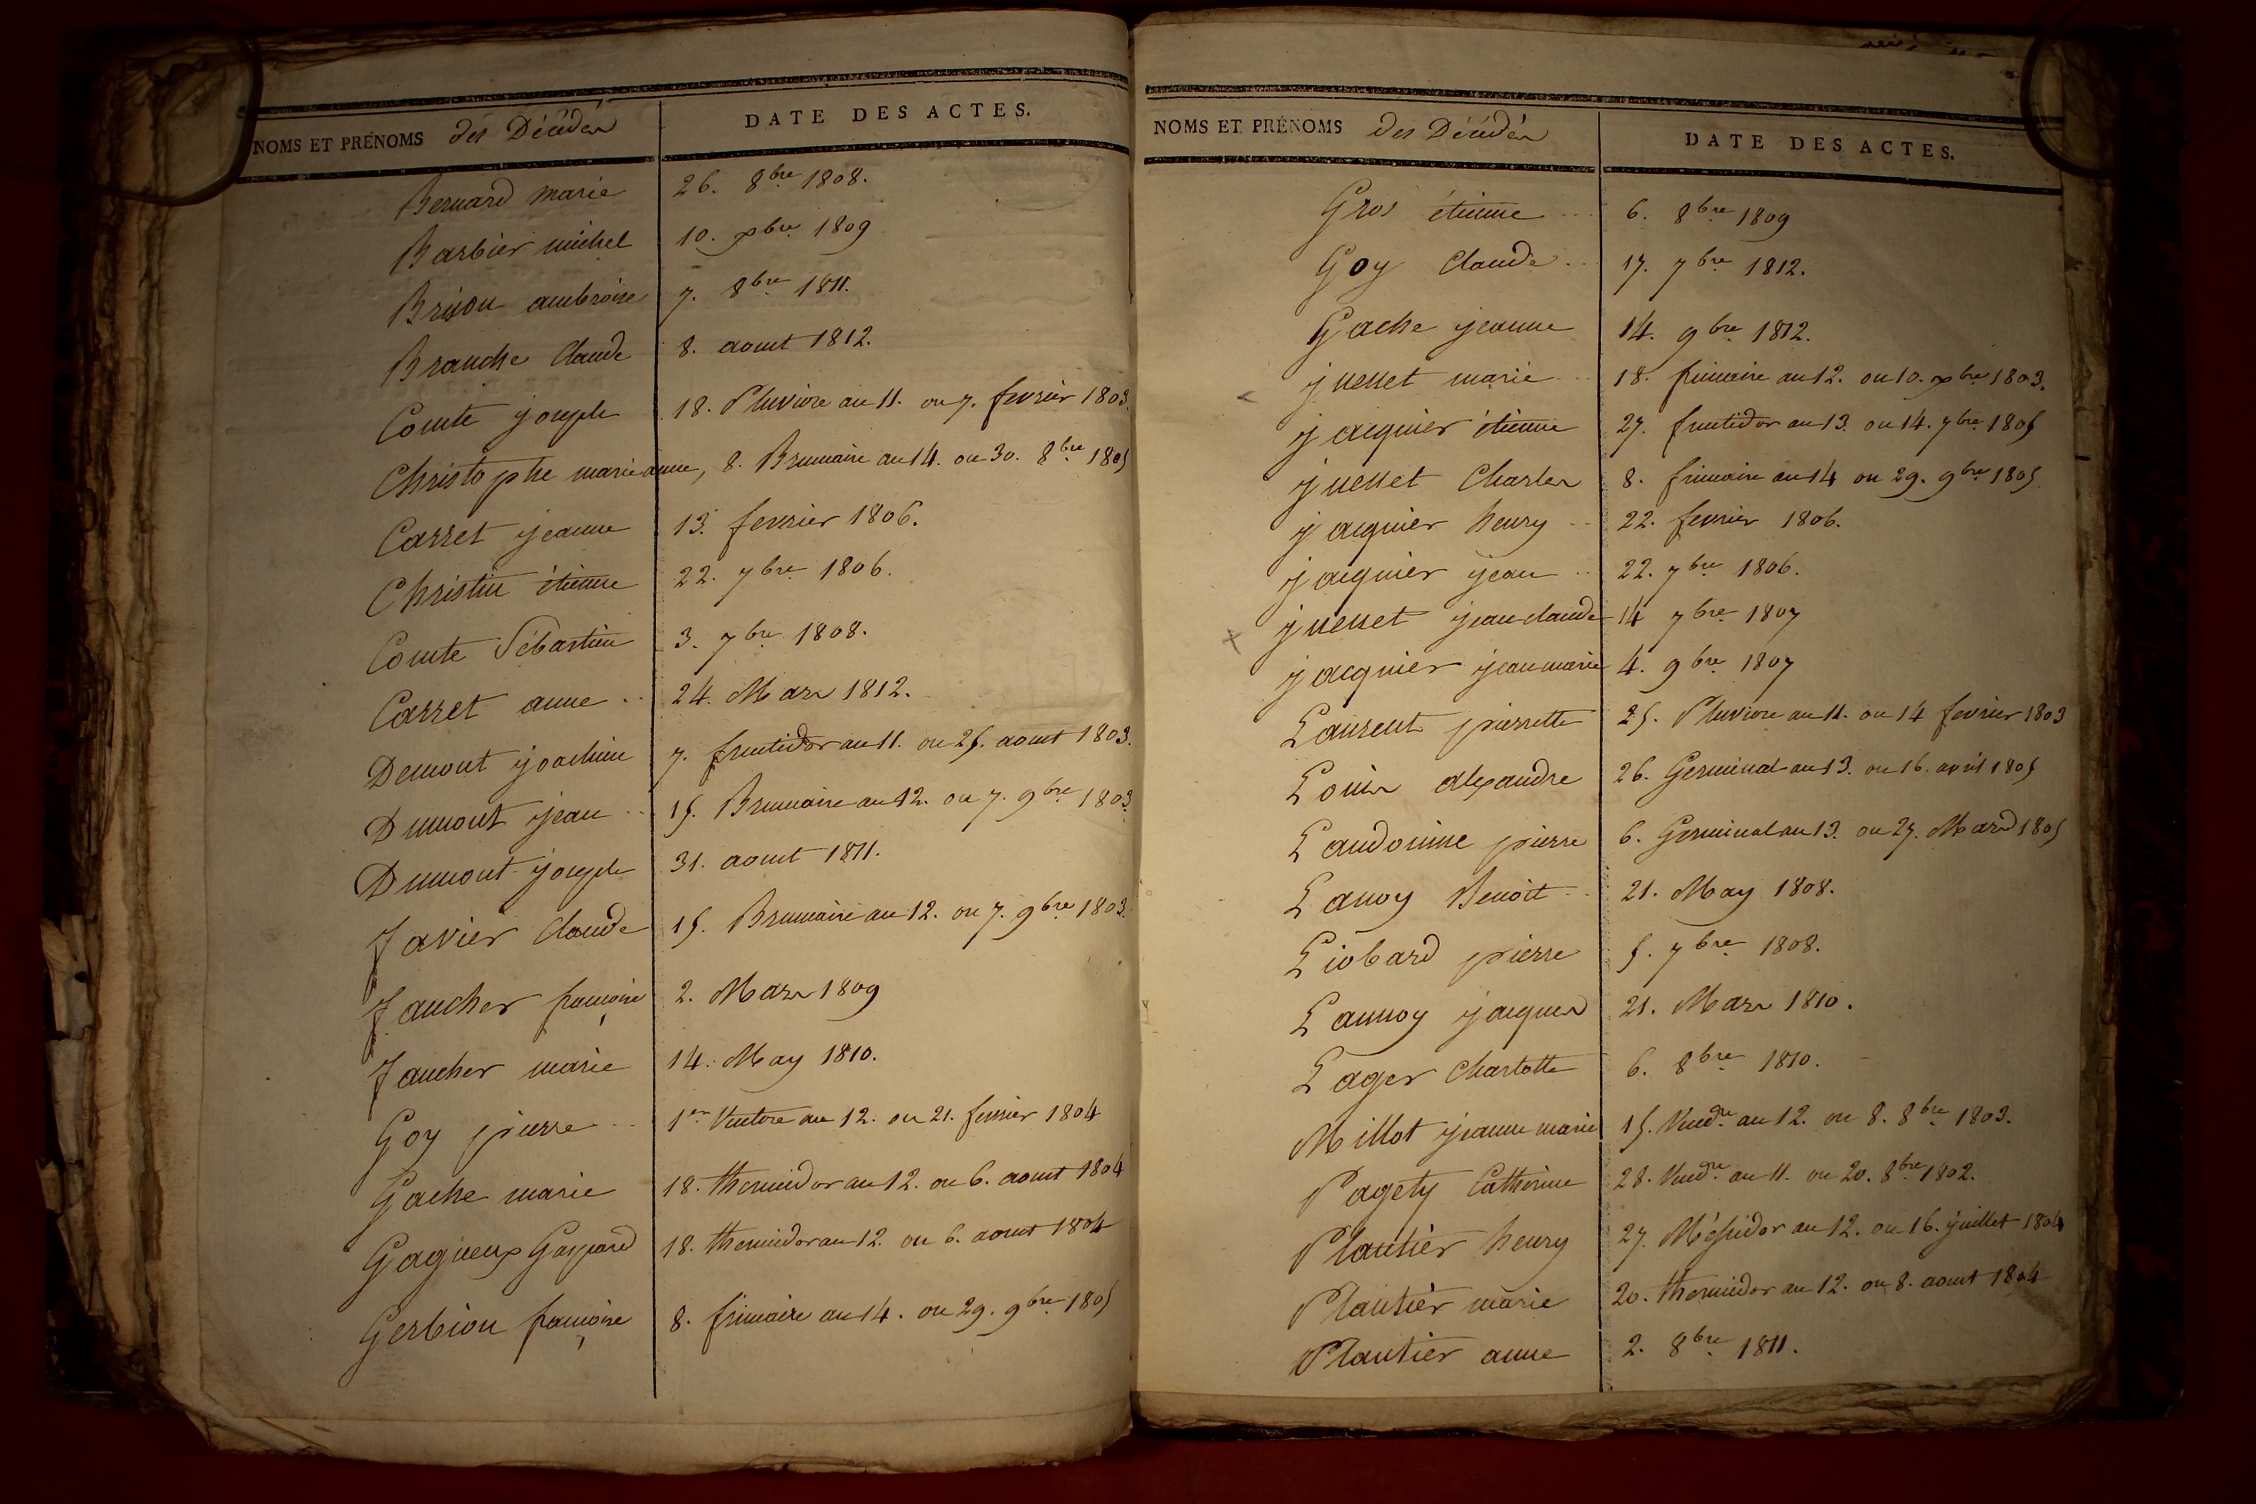 NOMS ET PRÉNOMS des Décédés DATE DES ACTES.
Bernard marie 26. 8bre 1808.
Barbier michel 10. xbre 1809
Brison ambroise 7. 8bre 1811.
Branche Claude 8. aout 1812.
Comte joseph 18. Pluviose an 11. ou 7. fevrier 1803.
Christophe marie anne, 8. Brumaire an 14. ou 30. 8bre 1805
Carret jeanne 13. fevrier 1806.
Christin étienne 22. 7bre 1806.
Comte Sébastien 3. 7bre 1808.
Carret anne .. 24. Mars 1812.
Demont joachim 7. fructidor an 11. ou 25. aout 1803.
Dumont jean .. 15. Brumaire an 12. ou 7. 9bre 1803
Dumont joseph 31. aout 1811.
favier Claude 15. Brumaire an 12. ou 7. 9bre 1803.
faucher françoise 2. Mars 1809
faucher marie 14. May 1810.
Goy pierre .. 1er Ventose an 12. ou 21. fevrier 1804
Gache marie 18. thermidor an 12. ou 6. aout 1804
Gagneux Gaspard 18. thermidor an 12. ou 6. aout 1804
Gerbion françoise 8. frimaire an 14. ou 29. 9bre 1805
NOMS ET PRÉNOMS des Décédés DATE DES ACTES.
Gros étienne ... 6. 8bre 1809
Goy Claude .. 17. 7bre 1812.
Gache jeanne 14. 9bre 1812.
juenet marie .. 18. frimaire an 12. ou 10. xbre 1803.
jacquier étienne 27. fructidor an 13. ou 14. 7bre 1805
juenet Charles 8. frimaire an 14 ou 29. 9bre 1805
jacquier henry .. 22. fevrier 1806.
jacquier jean .. 22. 7bre 1806.
juenet jean claude 14 7bre 1807
jacquier jean marie 4. 9bre 1807
Laurent pierrette 25. Pluviose an 11. ou 14 fevrier 1803
Louis alexandre 26. Germinal an 13. ou 16. avril 1805
Laudoinne pierre 6. Germinal an 13. ou 27. Mars 1805
Lanoy Benoit .. 21. May 1808.
Liobard pierre 5. 7bre 1808.
Lannoy jacques 21. Mars 1810.
Lager Charlotte 6. 8bre 1810.
Millot jeanne marie 15. Vendre an 12. ou 8. 8bre 1803.
Pagety Catherine 28. Vendre an 11. ou 20. 8bre 1802.
Plantier henry 27. Messidor an 12. ou 16. juillet 1804
Plantier marie 20. thermidor an 12. ou 8. aout 1804
Plantier anne 2. 8bre 1811.